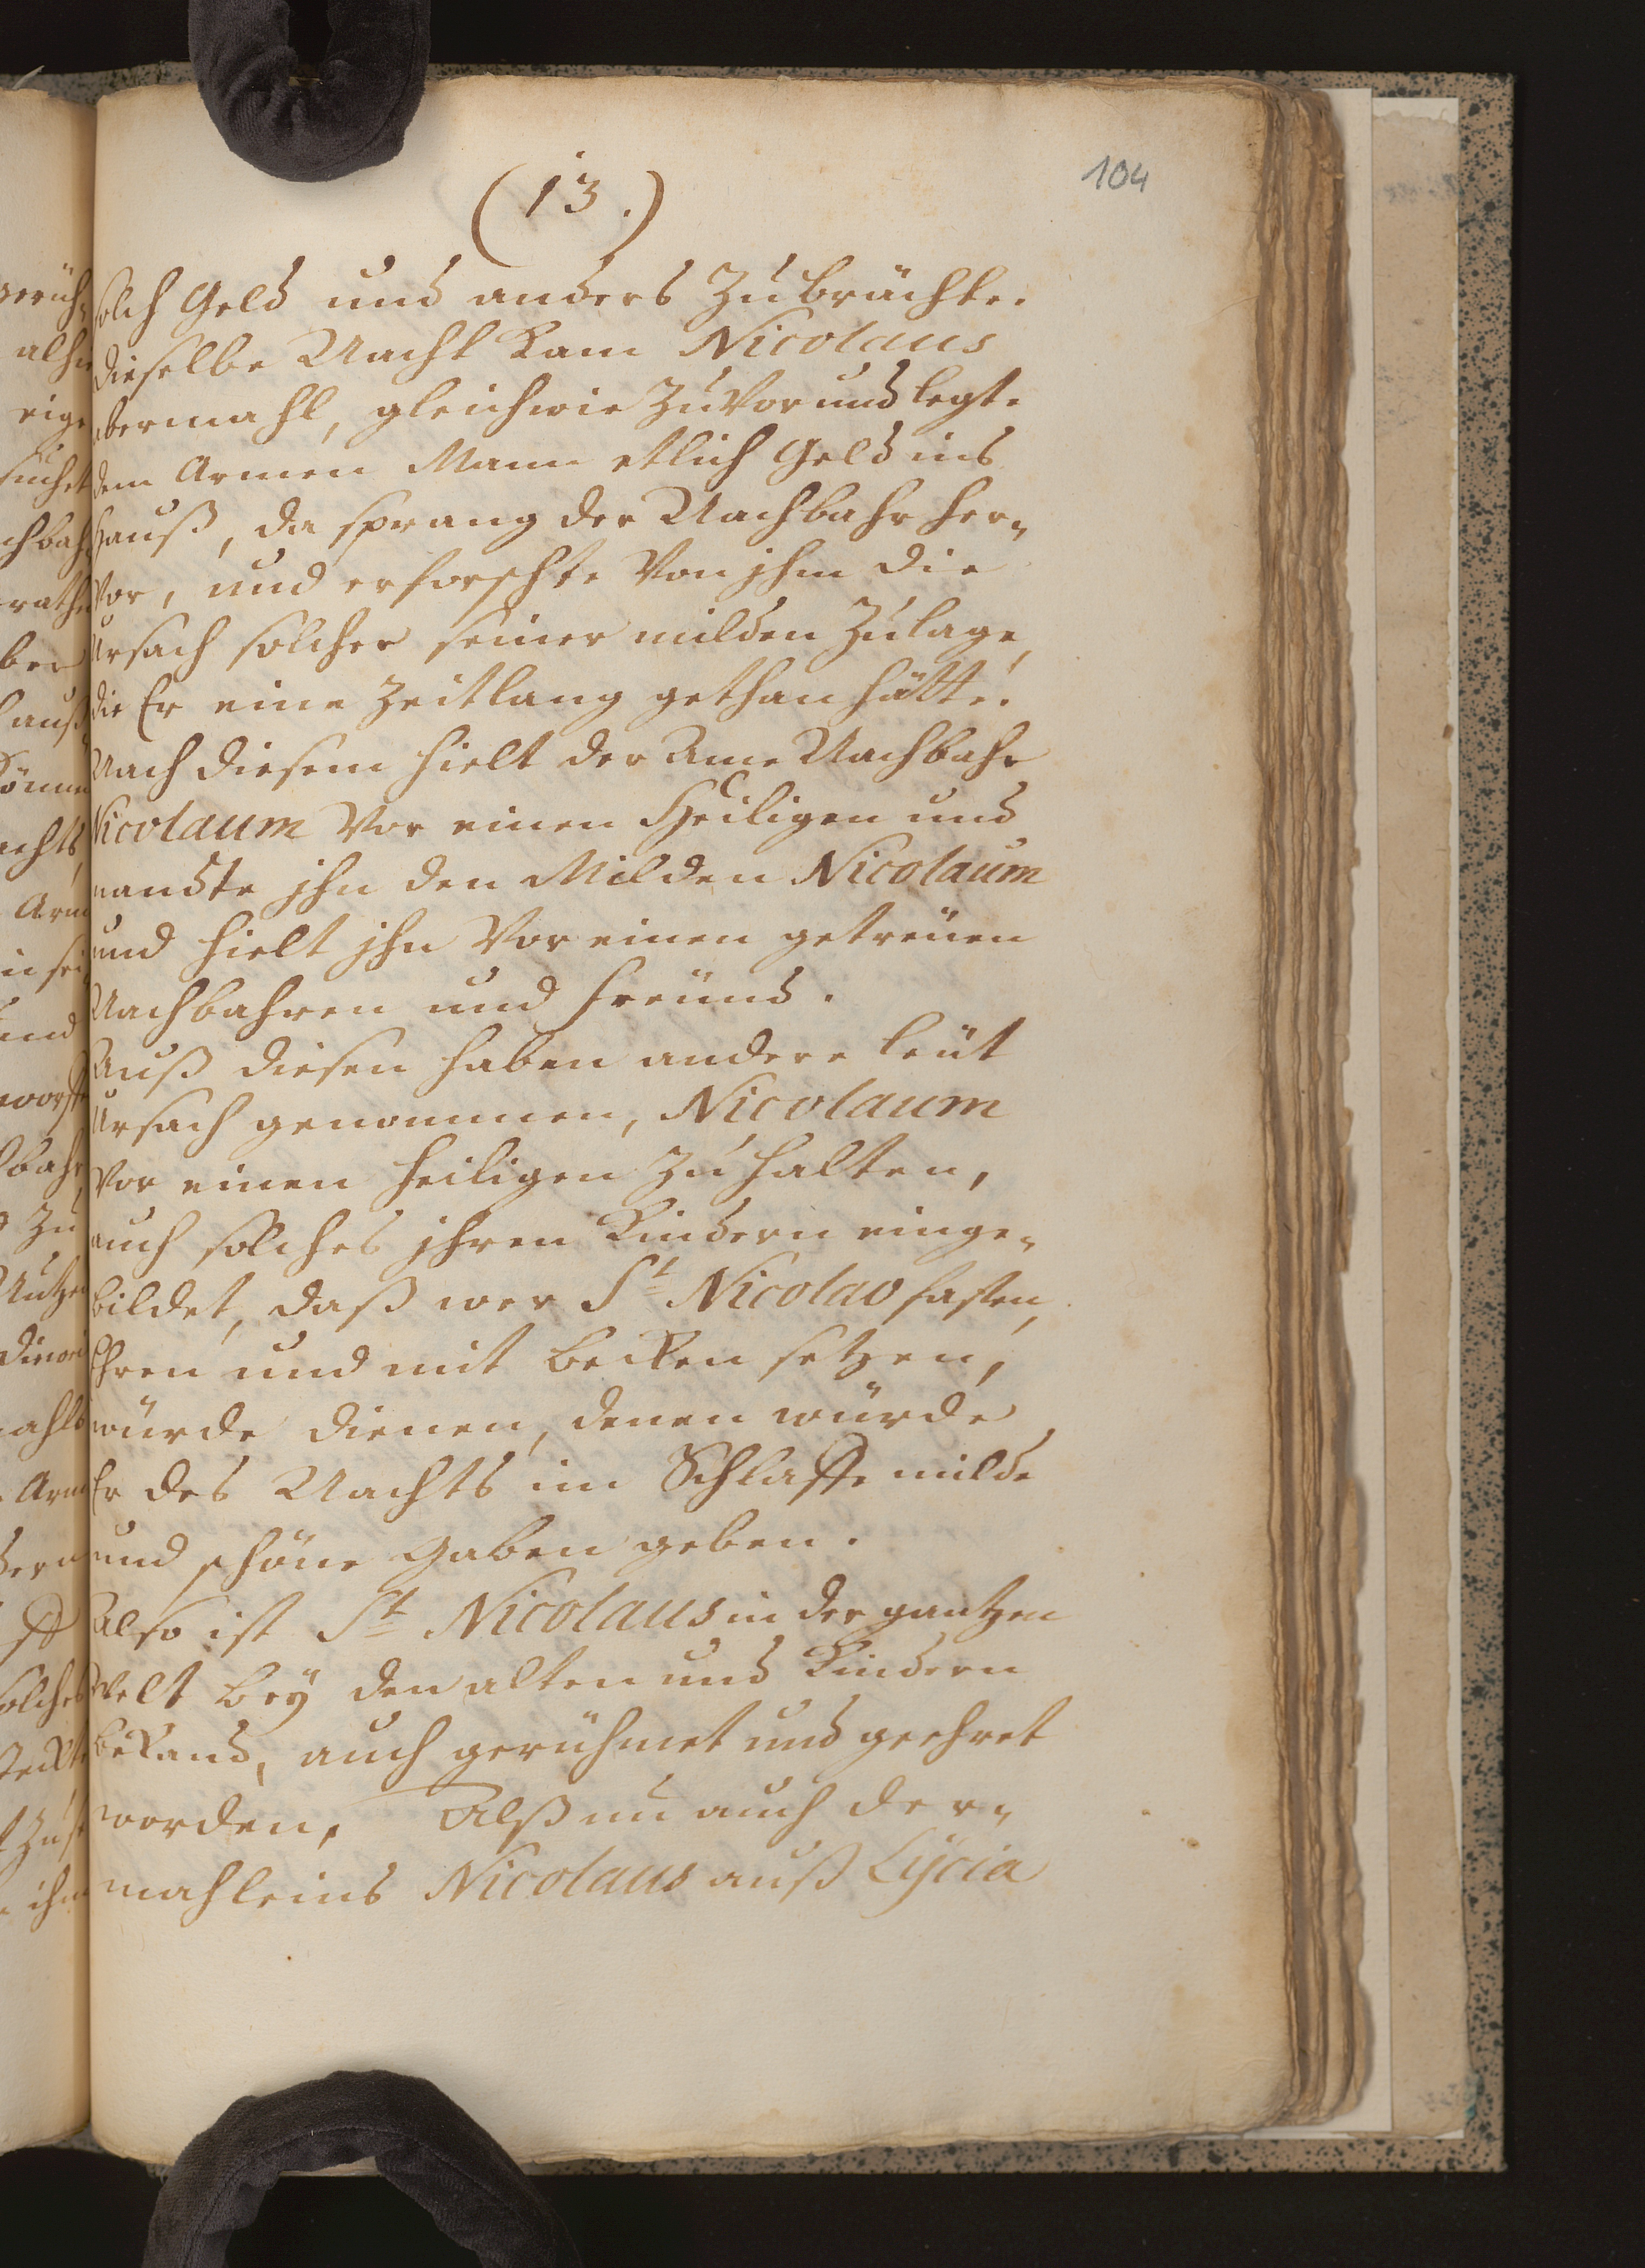 104
(13.)
solch Geld und anders Zubrächte.
dieselbe Nacht Kam Nicolaus
abermahl, gleichwie Zuvor und legte
dem Armen Mann etlich Geld ins
Hauß, da sprang der Nachbahr her„
Vor, und erforschte Von jhm die
Ursach solcher seiner milden Zulage,
die Er eine Zeitlang gethan hätte.
Nach diesem hielt der Arme Nachbahr
Nicolaum Vor einen Heiligen und
nandte jhn den Milden Nicolaum
und hielt jhn Vor einen getreüen
Nachbahren und freünd.
Auß diesen haben andere leüt
Ursach genommen, Nicolaum
Vor einen heiligen Zu halten,
auch solches jhren Kindern einge„
bildet, daß wer St Nicolao fasten,
Ehren und mit Becken setzen,
würde dienen, denen würde
Er des Nachts im Schlaffe milde
und schöne Gaben geben.
Also ist St Nicolaus in der gantzen
Welt bey den alten und Kindern
bekand, auch gerühmet und geehret
worden. Alß nu auch der„
mahleins Nicolaus auß Lÿcia